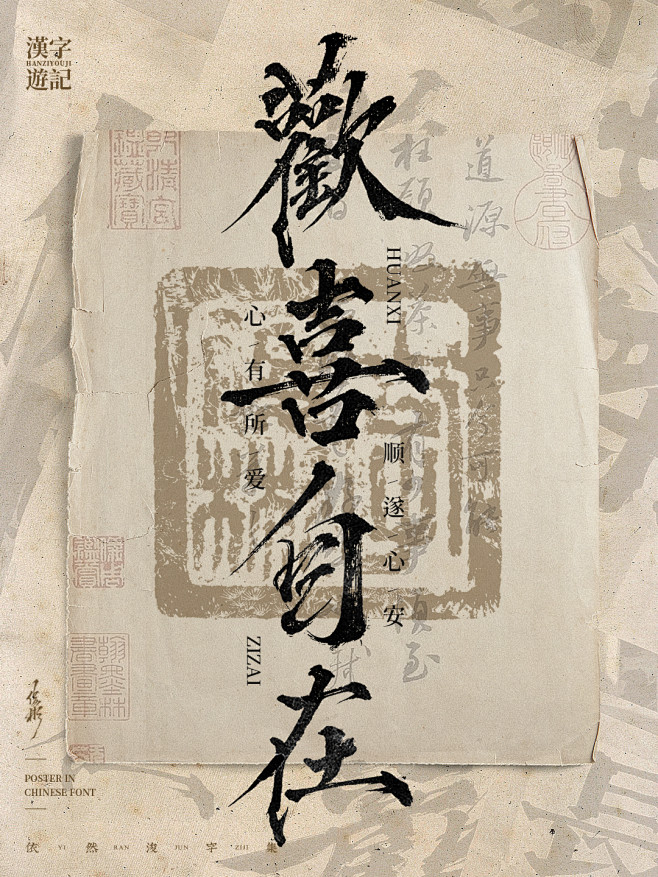 漢字
HANZIYOUJI
遊記
歡喜自在
HUANXI
心有所爱
顺遂心安
ZIZAI
道源無事只今可能
POSTER IN
CHINESE FONT
依 YI 然 RAN 浚 JUN 字 ZHI 集